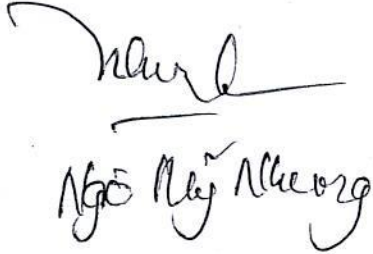 Ngô Mỹ Nhung